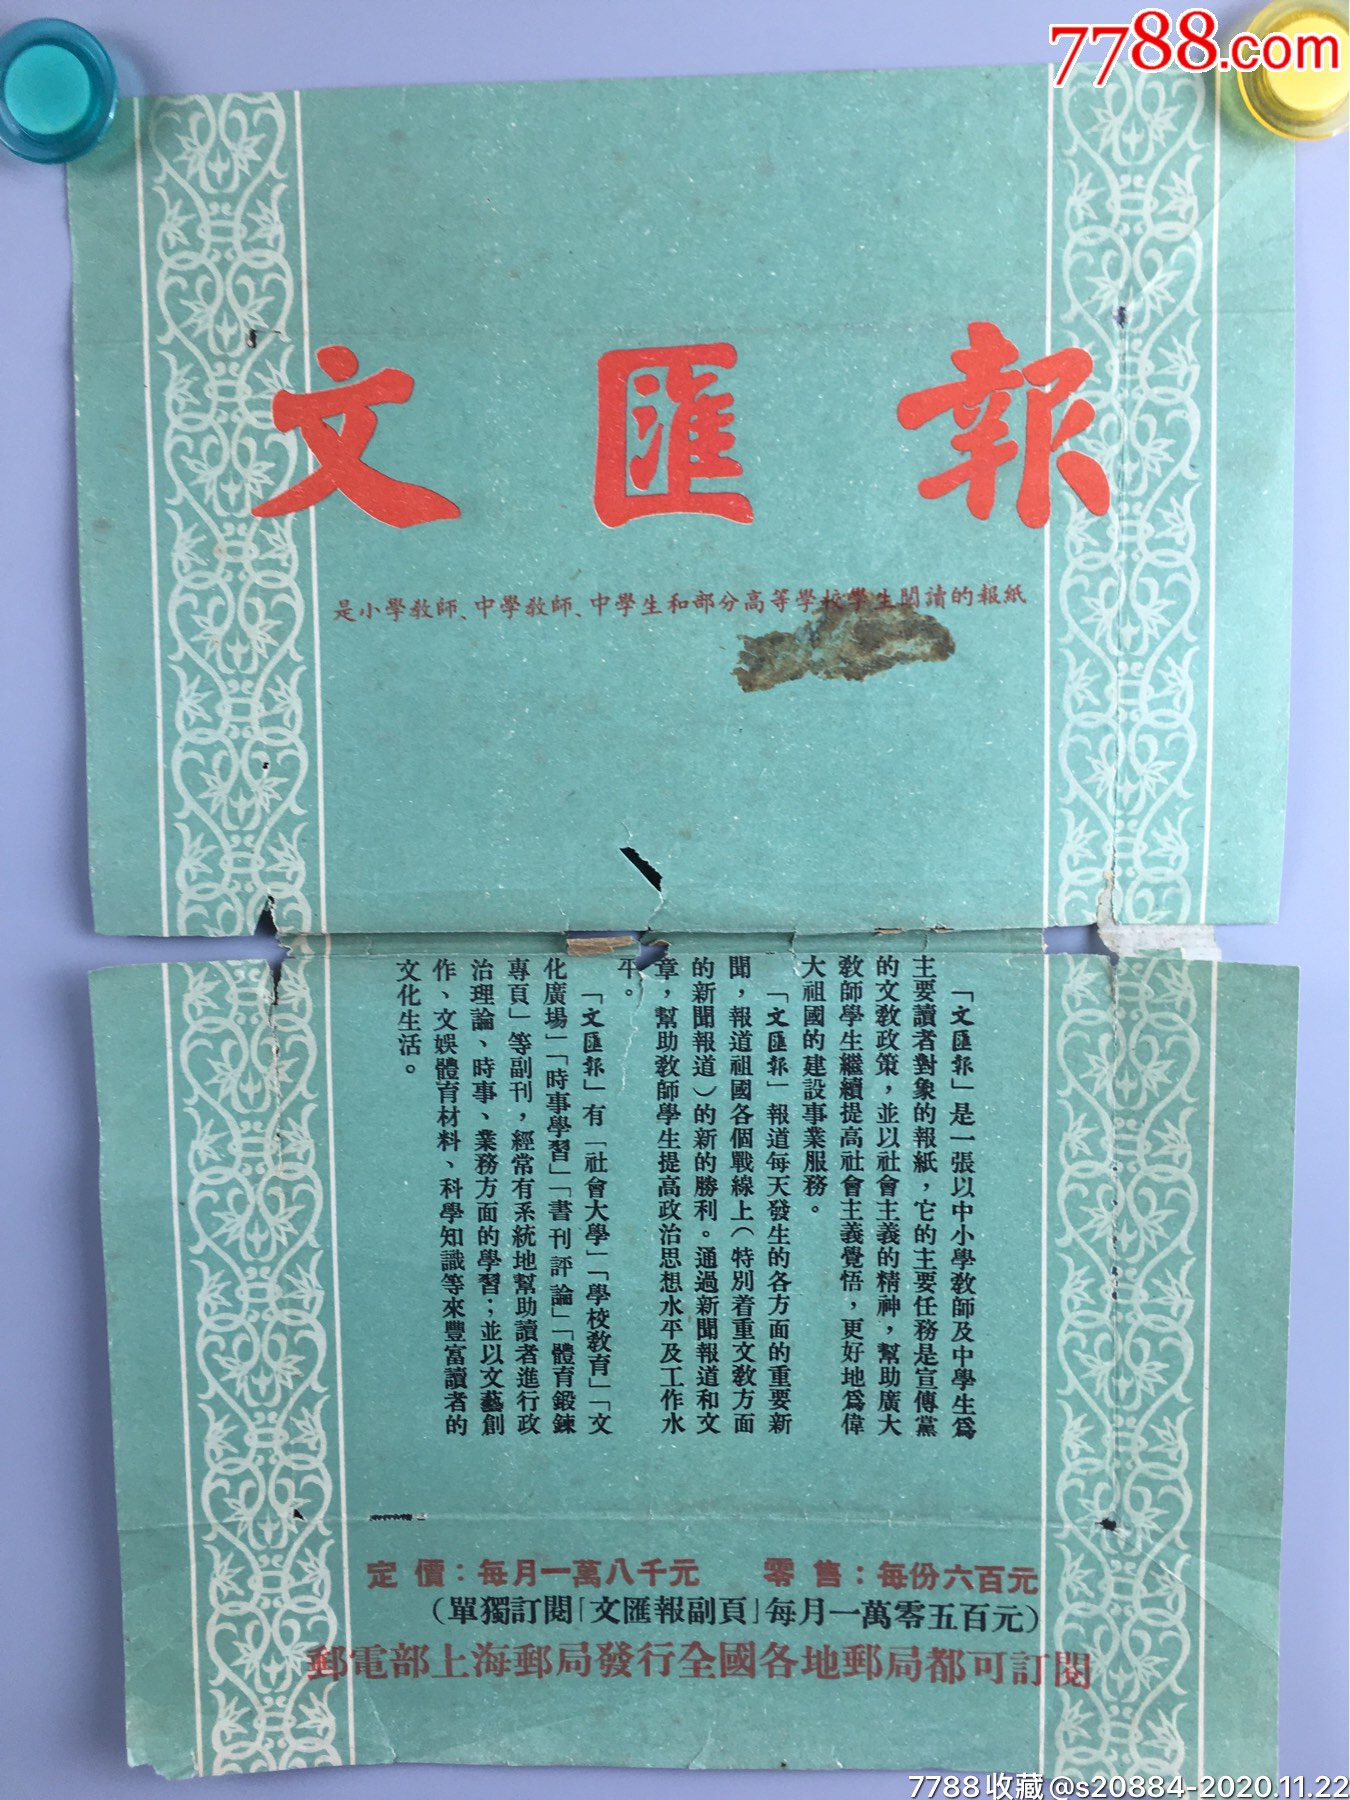 7788.com
文匯報
是小學教師、中學教師、中學生和部分高等學校學生閱讀的報紙
「文匯報」是一張以中小學教師及中學生爲
主要讀者對象的報紙，它的主要任務是宣傳黨
的文教政策，並以社會主義的精神，幫助廣大
教師學生繼續提高社會主義覺悟，更好地爲偉
大祖國的建設事業服務。
「文匯報」報道每天發生的各方面的重要新
聞，報道祖國各個戰線上（特別着重文教方面
的新聞報道）的新的勝利。通過新聞報道和文
章，幫助教師學生提高政治思想水平及工作水
平。
「文匯報」有「社會大學」「學校教育」「文
化廣場」「時事學習」「書刊評論」「體育鍛鍊
專頁」等副刊，經常有系統地幫助讀者進行政
治理論、時事、業務方面的學習；並以文藝創
作、文娛體育材料、科學知識等來豐富讀者的
文化生活。
定價：每月一萬八千元 零售：每份六百元
（單獨訂閱「文匯報副頁」每月一萬零五百元）
郵電部上海郵局發行全國各地郵局都可訂閱
7788收藏@s20884-2020.11.22